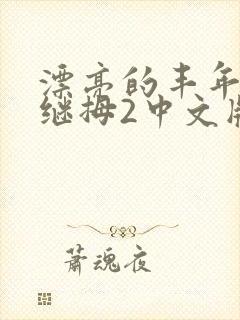 漂亮的丰年
继拇2中文版
萧魂夜